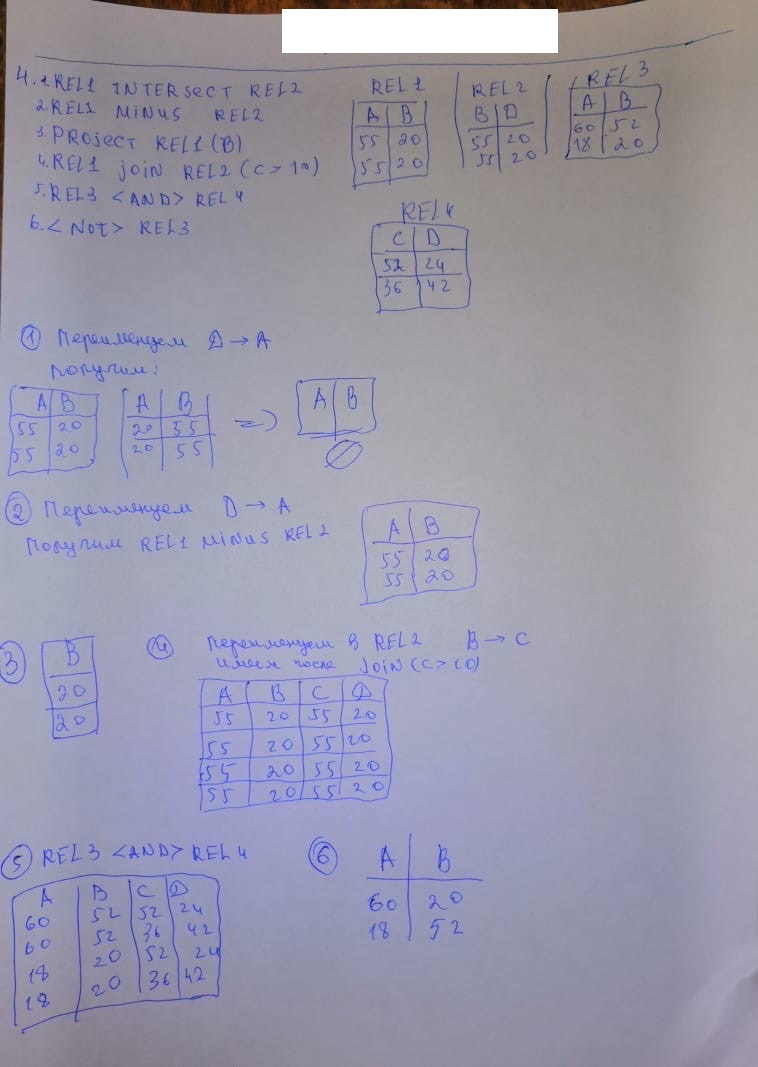 4. 1. REL1 INTERSECT REL2
2. REL1 MINUS REL2
3. PROJECT REL1 (B)
4. REL1 join REL2 (C > 10)
5. REL3 <AND> REL4
6. <NOT> REL3
REL1
A B
55 20
55 20
REL2
B D
55 20
55 20
REL3
A B
60 52
18 20
REL4
C D
52 24
36 42
① Переименуем D → A
получим:
A B
55 20
55 20
A B
20 55
20 55
=>
A B
∅
② Переименуем D → A
Получим REL1 MINUS REL2
A B
55 20
55 20
③
B
20
20
④ Переименуем в REL2 B → C
имеем после JOIN (C > 10)
A B C D
55 20 55 20
55 20 55 20
55 20 55 20
55 20 55 20
⑤ REL3 <AND> REL4
A B C D
60 52 52 24
60 52 36 42
18 20 52 24
18 20 36 42
⑥
A B
60 20
18 52